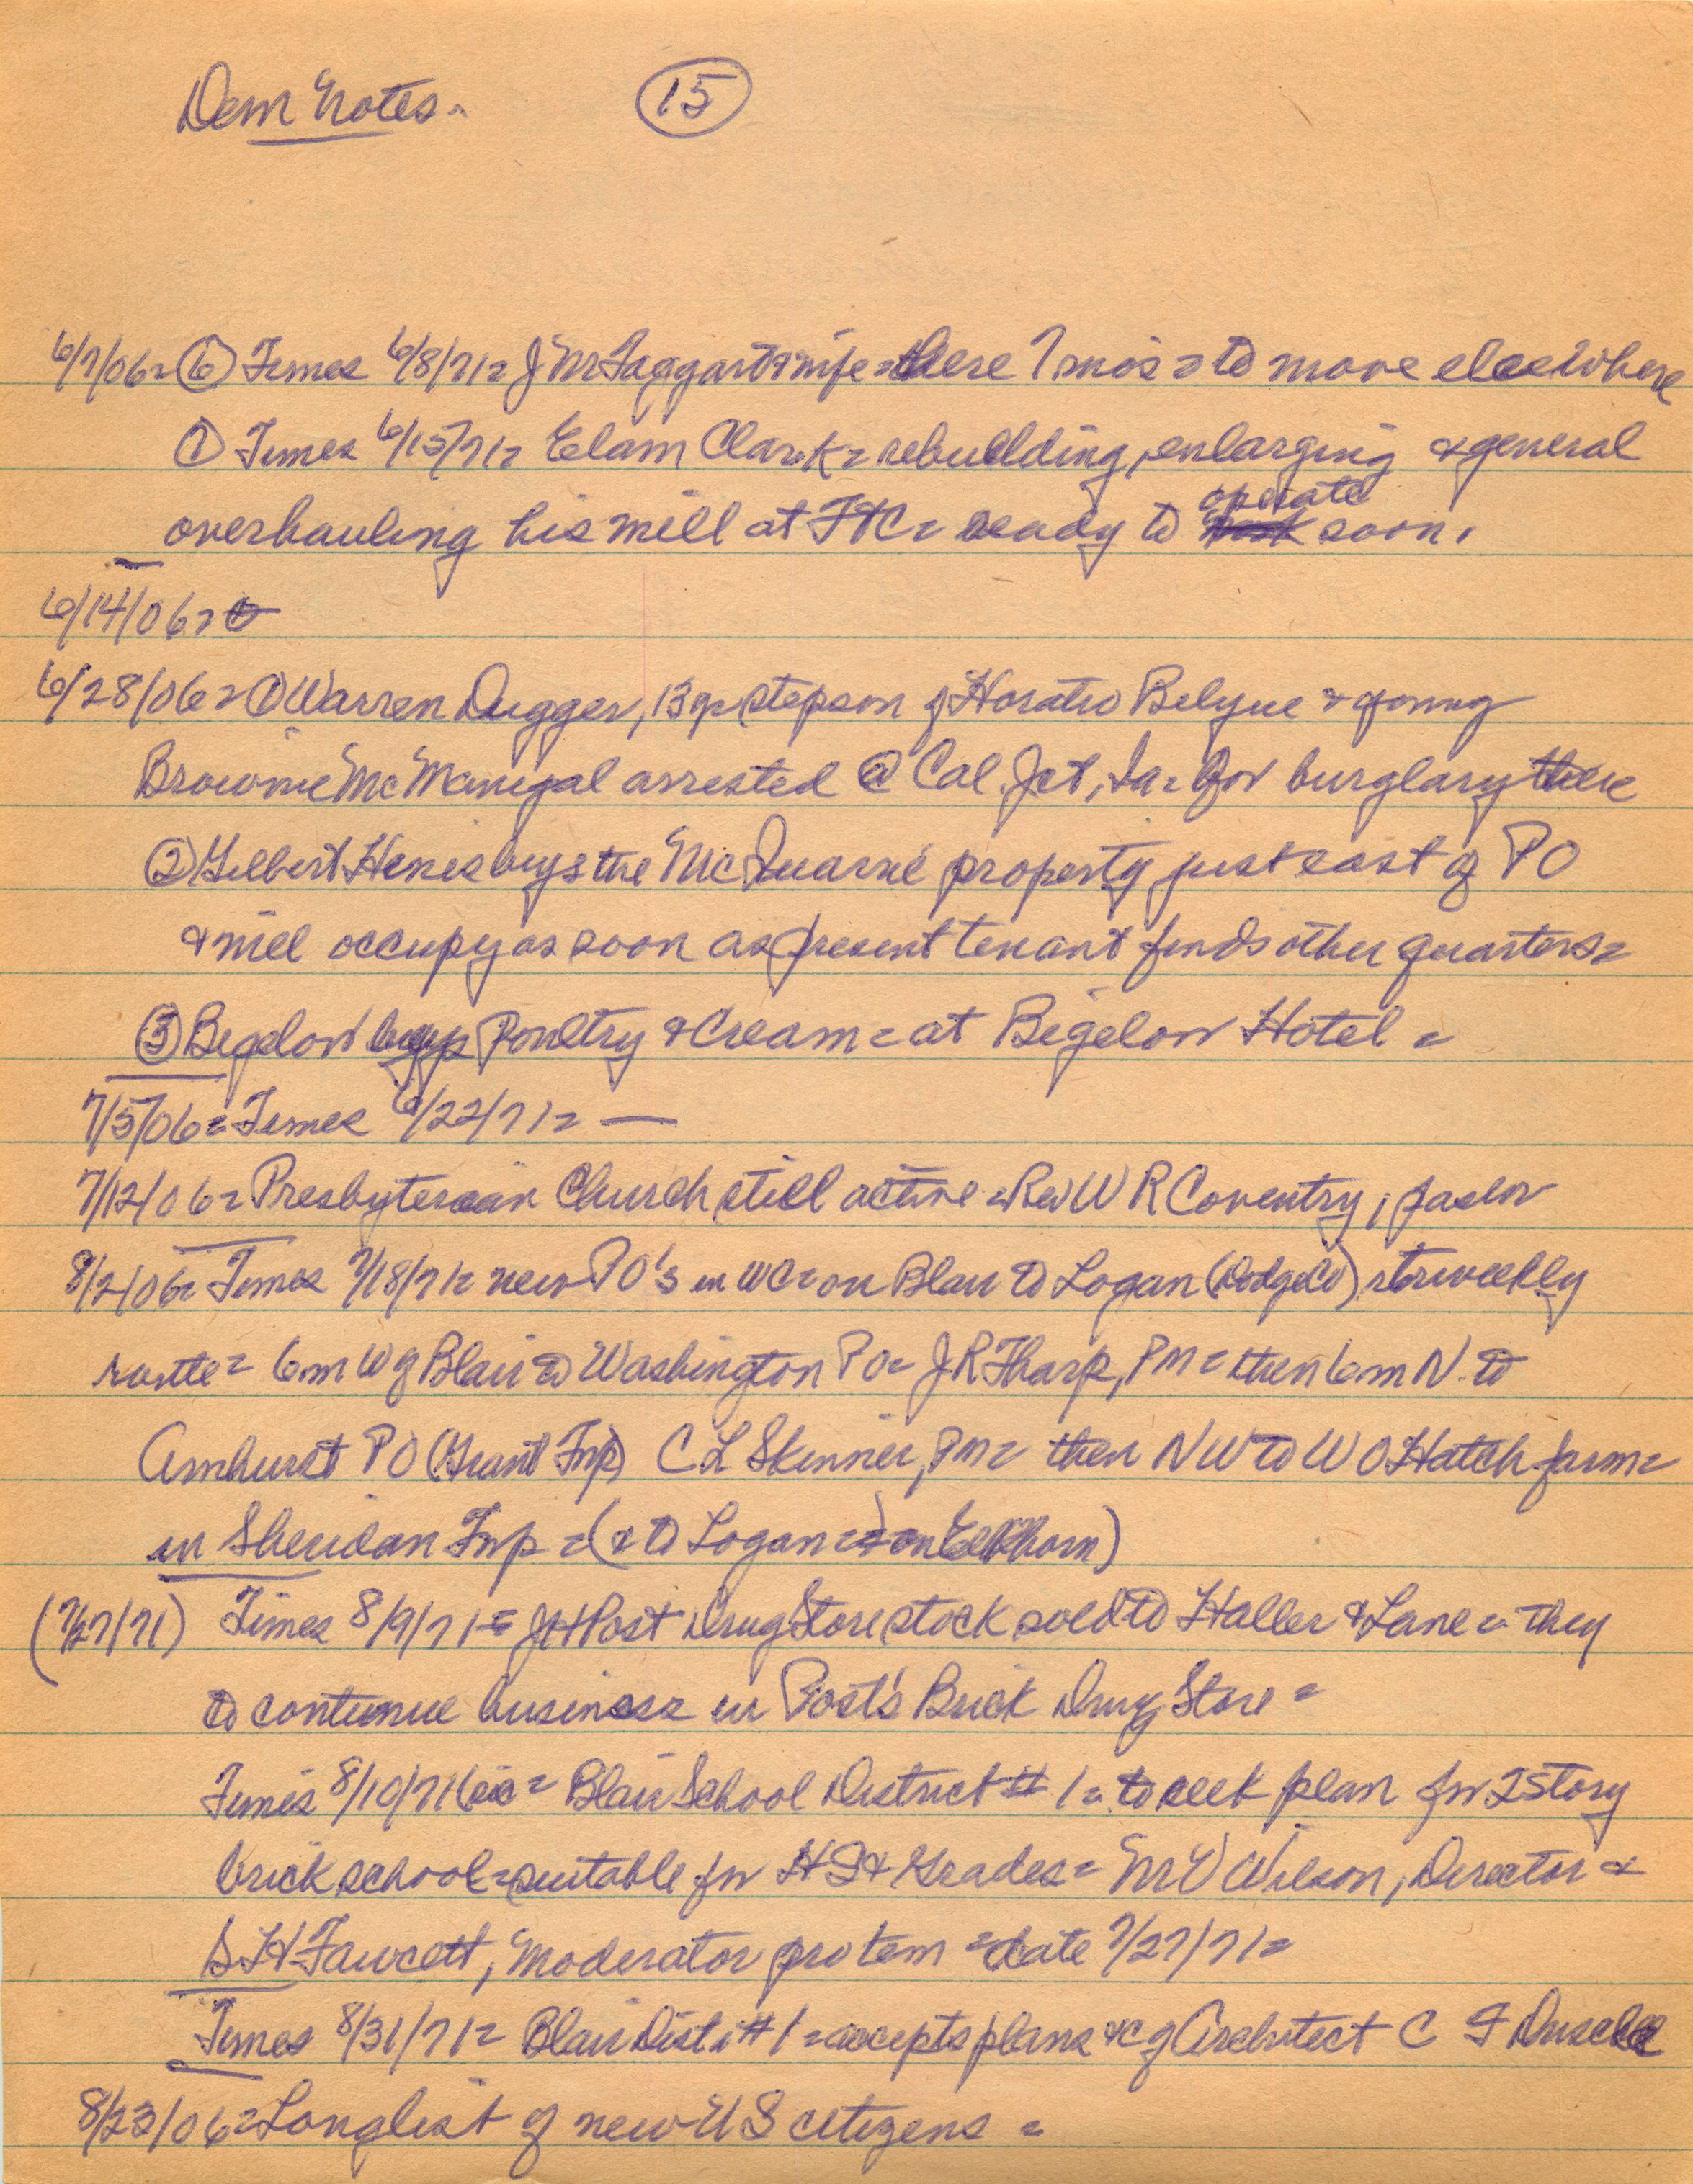 Dem Notes. 15
6/7/06= 6 Times 6/8/71= J M Taggart & wife = here 7 mos = to move elsewhere
7 Times 6/15/71= Elam Clark = rebuilding, enlarging & general
overhauling his mill at FTC = ready to operate soon.
6/14/06= 0
6/28/06= 1 Warren Dugger, 13 yr stepson of Horatio Belyue & young
Brownie McManigal arrested @ Cal. Jct, Ia = for burglary there
2 Gilbert Henis buys the McQuarrie property just east of PO
& will occupy as soon as present tenant finds other quarters =
3 Bigelow buys Poultry & Cream = at Bigelow Hotel =
7/5/06= Times 6/22/71= —
7/12/06= Presbyterian Church still active = Rev W R Coventry, pastor
8/2/06= Times 7/18/71= new PO's in WC = on Blair to Logan (Dodge Co)
route = 6 m W of Blair to Washington PO = J R Tharp, PM = then 6 m N to
Amhurst PO (Grant Twp) C L Skinner, PM = then NW to W O Hatch farm =
in Sheridan Twp = (& to Logan = on Elkhorn)
(7/27/71) Times 8/9/71= J H Post Drug Store stock sold to Haller & Lane = they
to continue business in Post's Brick Drug Store =
Times 8/10/71 (sic = Blair School District # 1 = to seek plan for 2 story
brick school = suitable for HS & Grades = M V Wilson, Director &
S H Fawcett, Moderator pro tem = date 7/27/71=
Times 8/31/71= Blair Dist # 1 = accepts plans &c of Architect C F
8/23/06= Long list of new US citizens =